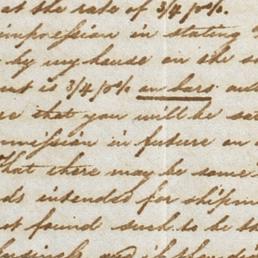 at the rate of 3/4 p%.
impression in stating
by my house on the s
is 3/4 p% on bars
that you will be sat
mmission in future on
That there may be some
ds intended for shipm
t found such to be th